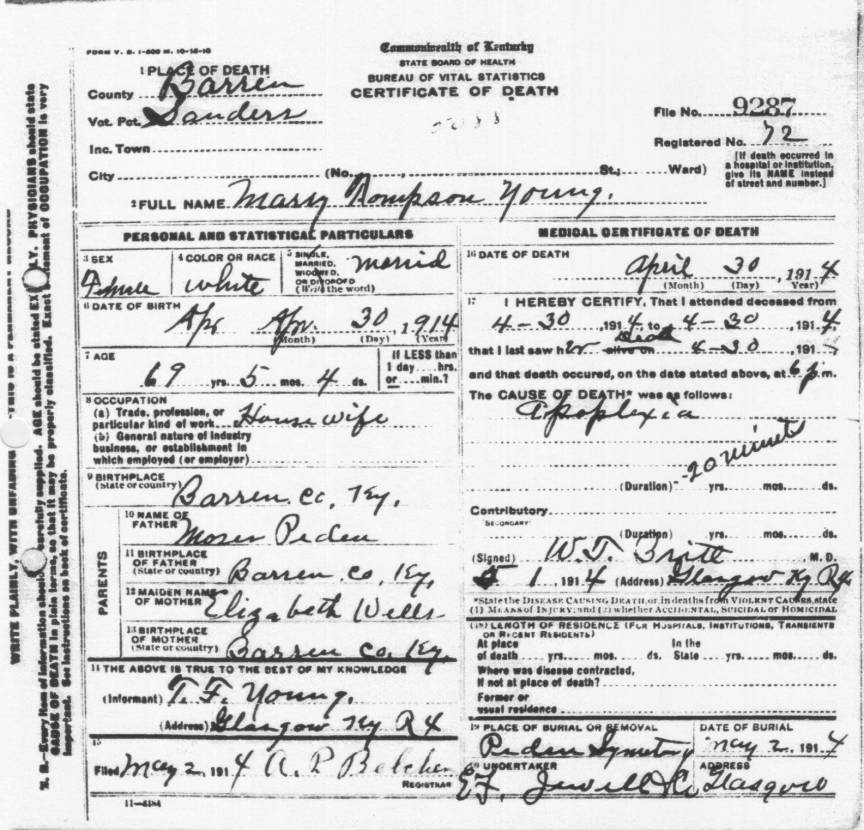 FORM V. S. 1-500 M. 10-15-10
Commonwealth of Kentucky
STATE BOARD OF HEALTH
BUREAU OF VITAL STATISTICS
CERTIFICATE OF DEATH
1 PLACE OF DEATH
County Barren
Vot. Pct. Sanders
Inc. Town
City (No. , St.; Ward)
File No. 9287
Registered No. 72
[If death occurred in a hospital or institution, give its NAME instead of street and number.]
2 FULL NAME Mary Tompson Young.
PERSONAL AND STATISTICAL PARTICULARS
3 SEX
Female
4 COLOR OR RACE
white
5 SINGLE, MARRIED, WIDOWED, OR DIVORCED (Write the word)
Married
6 DATE OF BIRTH
Apr Apr. 30, 1914
(Month) (Day) (Year)
7 AGE
69 yrs. 5 mos. 4 ds.
If LESS than 1 day ... hrs. or ... min.?
8 OCCUPATION
(a) Trade, profession, or particular kind of work House wife
(b) General nature of industry business, or establishment in which employed (or employer)
9 BIRTHPLACE
(State or country) Barren Co, Ky.
PARENTS
10 NAME OF FATHER Moses Peden
11 BIRTHPLACE OF FATHER (State or country) Barren Co, Ky.
12 MAIDEN NAME OF MOTHER Elizabeth Wells
13 BIRTHPLACE OF MOTHER (State or country) Barren Co, Ky.
14 THE ABOVE IS TRUE TO THE BEST OF MY KNOWLEDGE
(Informant) T. F. Young.
(Address) Glasgow Ky R4
15
Filed May 2, 1914 A. P Belcher
REGISTRAR
11-5184
MEDICAL CERTIFICATE OF DEATH
16 DATE OF DEATH
April 30, 1914
(Month) (Day) (Year)
17 I HEREBY CERTIFY, That I attended deceased from
4-30, 1914 to 4-30, 1914.
that I last saw her Dead alive on 4-30, 191
and that death occured, on the date stated above, at 6 p.m.
The CAUSE OF DEATH* was as follows:
Apoplexia
20 minut
(Duration) yrs. mos. ds.
Contributory
"SECONDARY"
(Duration) yrs. mos. ds.
(Signed) W. T. Britt M. D.
5 1 1914 (Address) Glasgow Ky R4
*State the DISEASE CAUSING DEATH, or, in deaths from VIOLENT CAUSES, state
(1) MEANS OF INJURY; and (2) whether ACCIDENTAL, SUICIDAL or HOMICIDAL
(18) LENGTH OF RESIDENCE (FOR HOSPITALS, INSTITUTIONS, TRANSIENTS OR RECENT RESIDENTS)
At place of death yrs. mos. ds. In the State yrs. mos. ds.
Where was disease contracted,
If not at place of death?
Former or
usual residence
19 PLACE OF BURIAL OR REMOVAL
Peden
DATE OF BURIAL
May 2, 1914
20 UNDERTAKER
E. F. Jewell & Co
ADDRESS
Glasgow
WRITE PLAINLY, WITH UNFADING
THIS IS A PERMANENT RECORD
N. B.—Every item of information should be carefully supplied. AGE should be stated EXACTLY. PHYSICIANS should state
CAUSE OF DEATH in plain terms, so that it may be properly classified. Exact statement of OCCUPATION is very
important. See instructions on back of certificate.